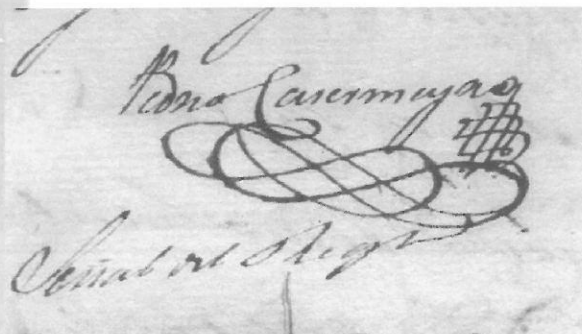 Pedro Casermeyro
Señal del Regr